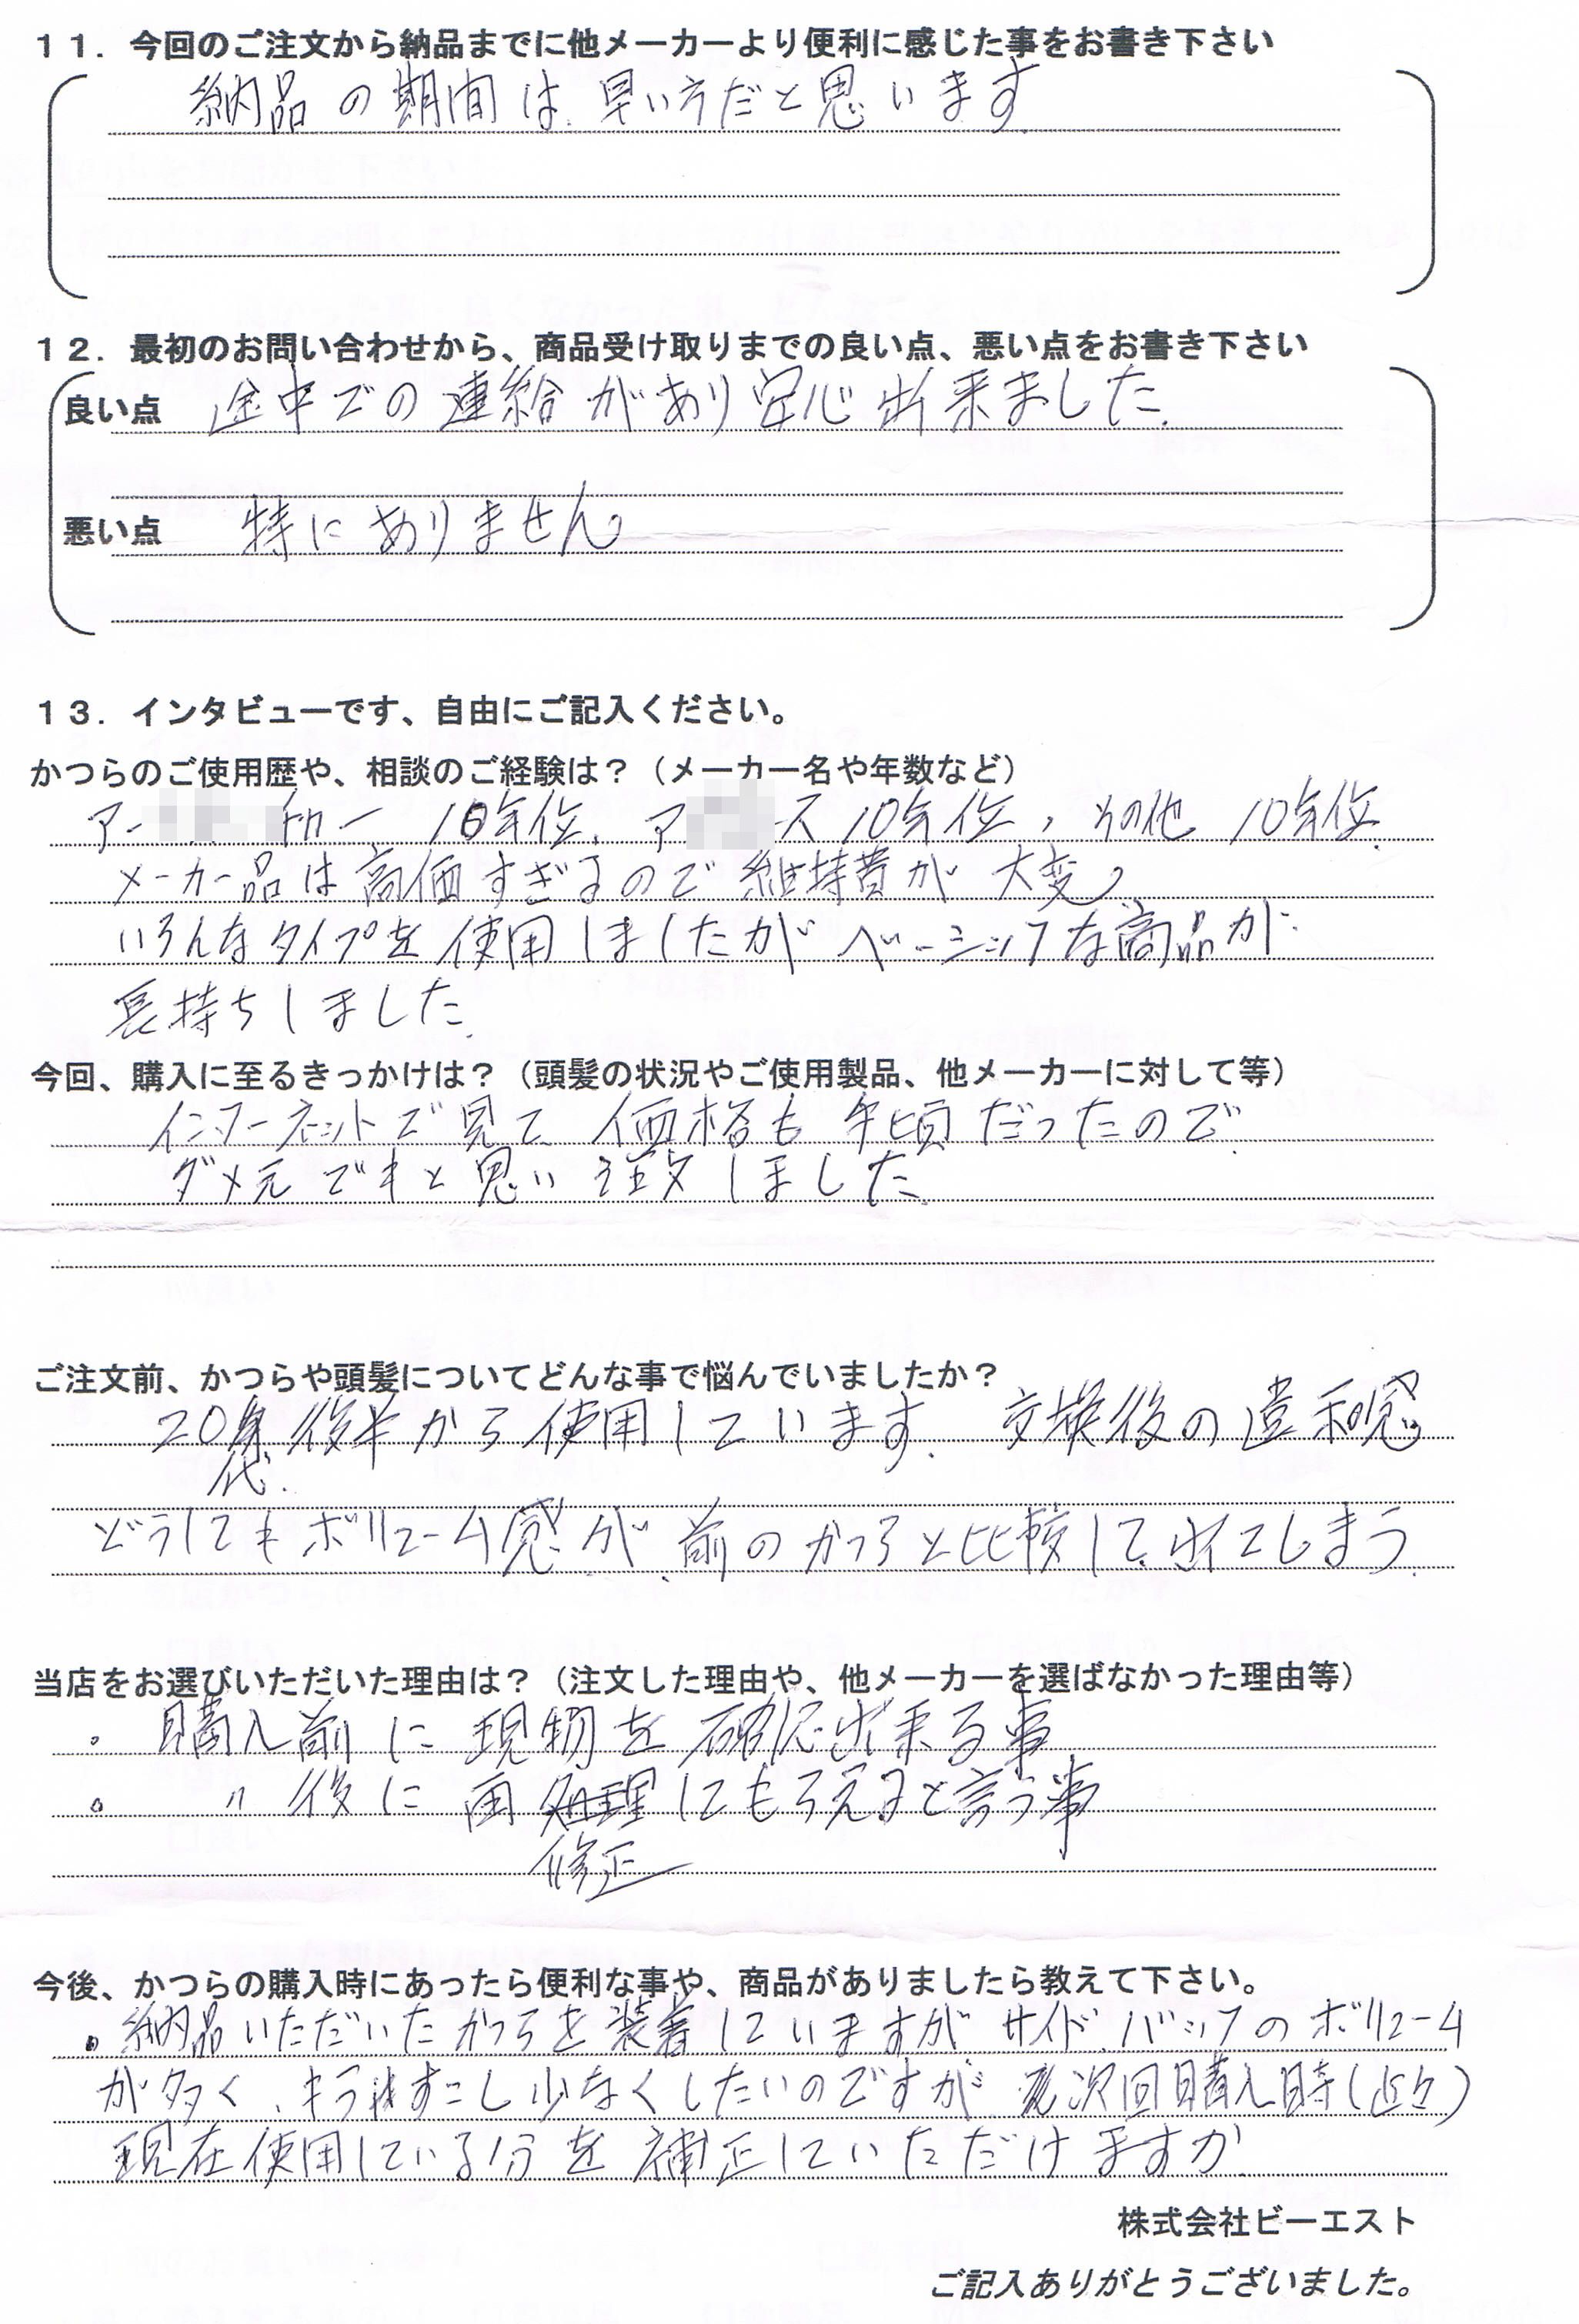 11. 今回のご注文から納品までに他メーカーより便利に感じた事をお書き下さい
納品の期間は、早い方だと思います
12. 最初のお問い合わせから、商品受け取りまでの良い点、悪い点をお書き下さい
良い点 途中での連絡があり安心出来ました。
悪い点 特にありません
13. インタビューです、自由にご記入ください。
かつらのご使用歴や、相談のご経験は？（メーカー名や年数など）
アー 10年位、ア ース 10年位、その他 10年位
メーカー品は高価すぎるので維持費が大変
いろんなタイプを使用しましたがベーシックな商品が
長持ちしました。
今回、購入に至るきっかけは？（頭髪の状況やご使用製品、他メーカーに対して等）
インターネットで見て価格も手頃だったので
ダメ元でもと思い注文しました。
ご注文前、かつらや頭髪についてどんな事で悩んでいましたか？
20代後半から使用しています。交換後の違和感
どうしてもボリューム感が前のかつらと比較して出てしまう
当店をお選びいただいた理由は？（注文した理由や、他メーカーを選ばなかった理由等）
。購入前に現物を確認出来る事
。 〃 後に再修正してもらえると言う事
今後、かつらの購入時にあったら便利な事や、商品がありましたら教えて下さい。
・納品いただいたかつらを装着していますがサイド、バックのボリューム
が多く、もうすこし少なくしたいのですが次回購入時（近々）
現在使用している分を補正していただけますか
株式会社ビーエスト
ご記入ありがとうございました。